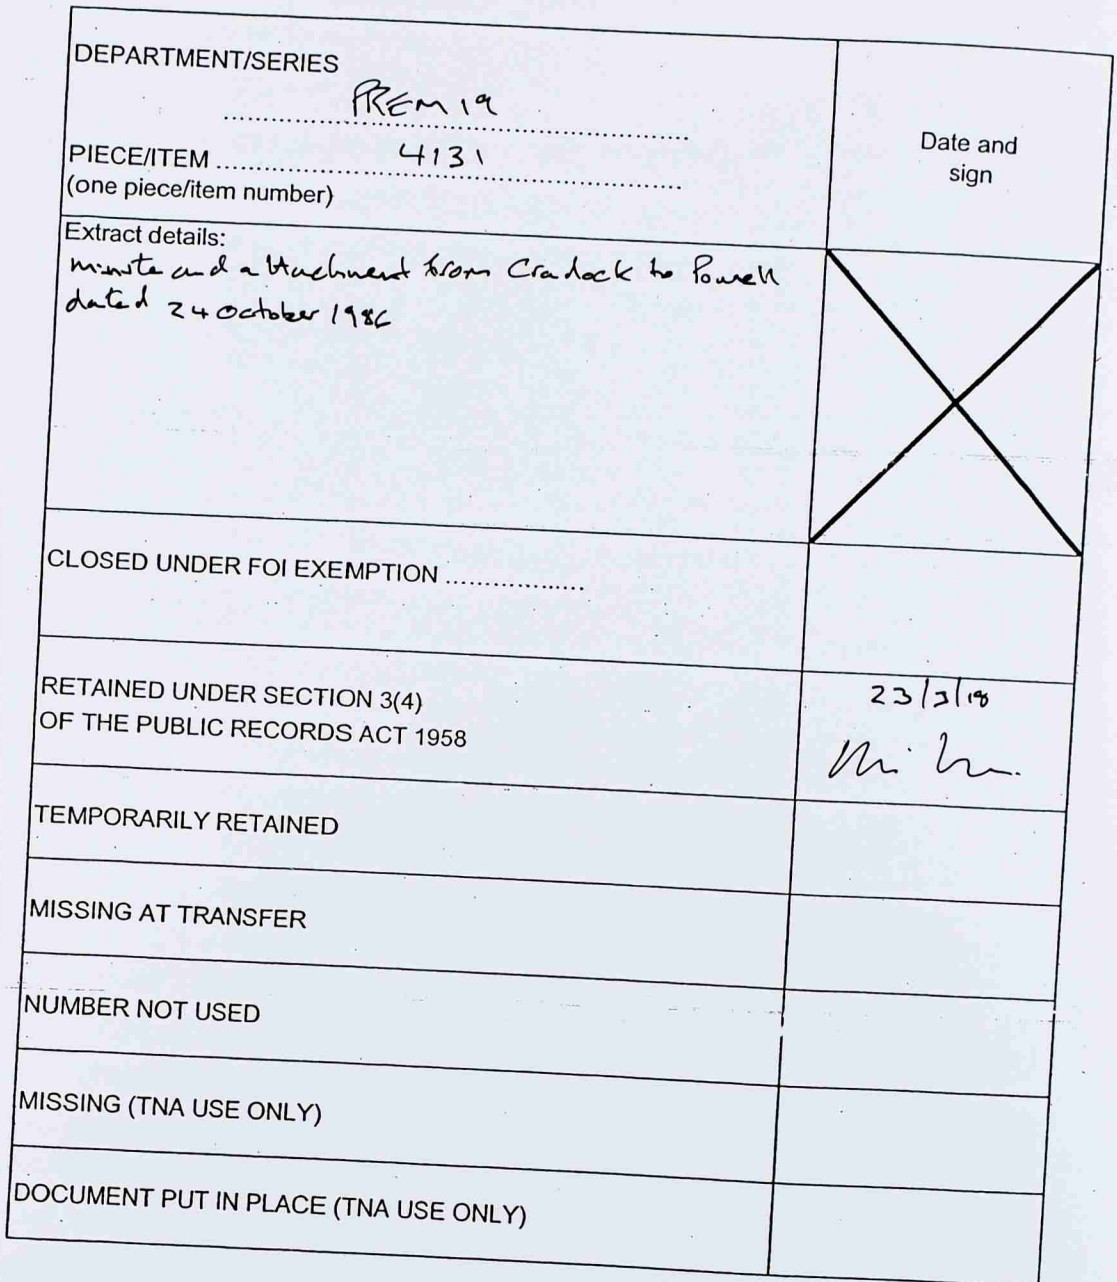 DEPARTMENT/SERIES
PREM 19
Date and
sign
PIECE/ITEM 4131
(one piece/item number)
Extract details:
Minute and attachment from Cradock to Powell
dated 24 October 1986
CLOSED UNDER FOI EXEMPTION
RETAINED UNDER SECTION 3(4)
OF THE PUBLIC RECORDS ACT 1958
23/3/18
TEMPORARILY RETAINED
MISSING AT TRANSFER
NUMBER NOT USED
MISSING (TNA USE ONLY)
DOCUMENT PUT IN PLACE (TNA USE ONLY)